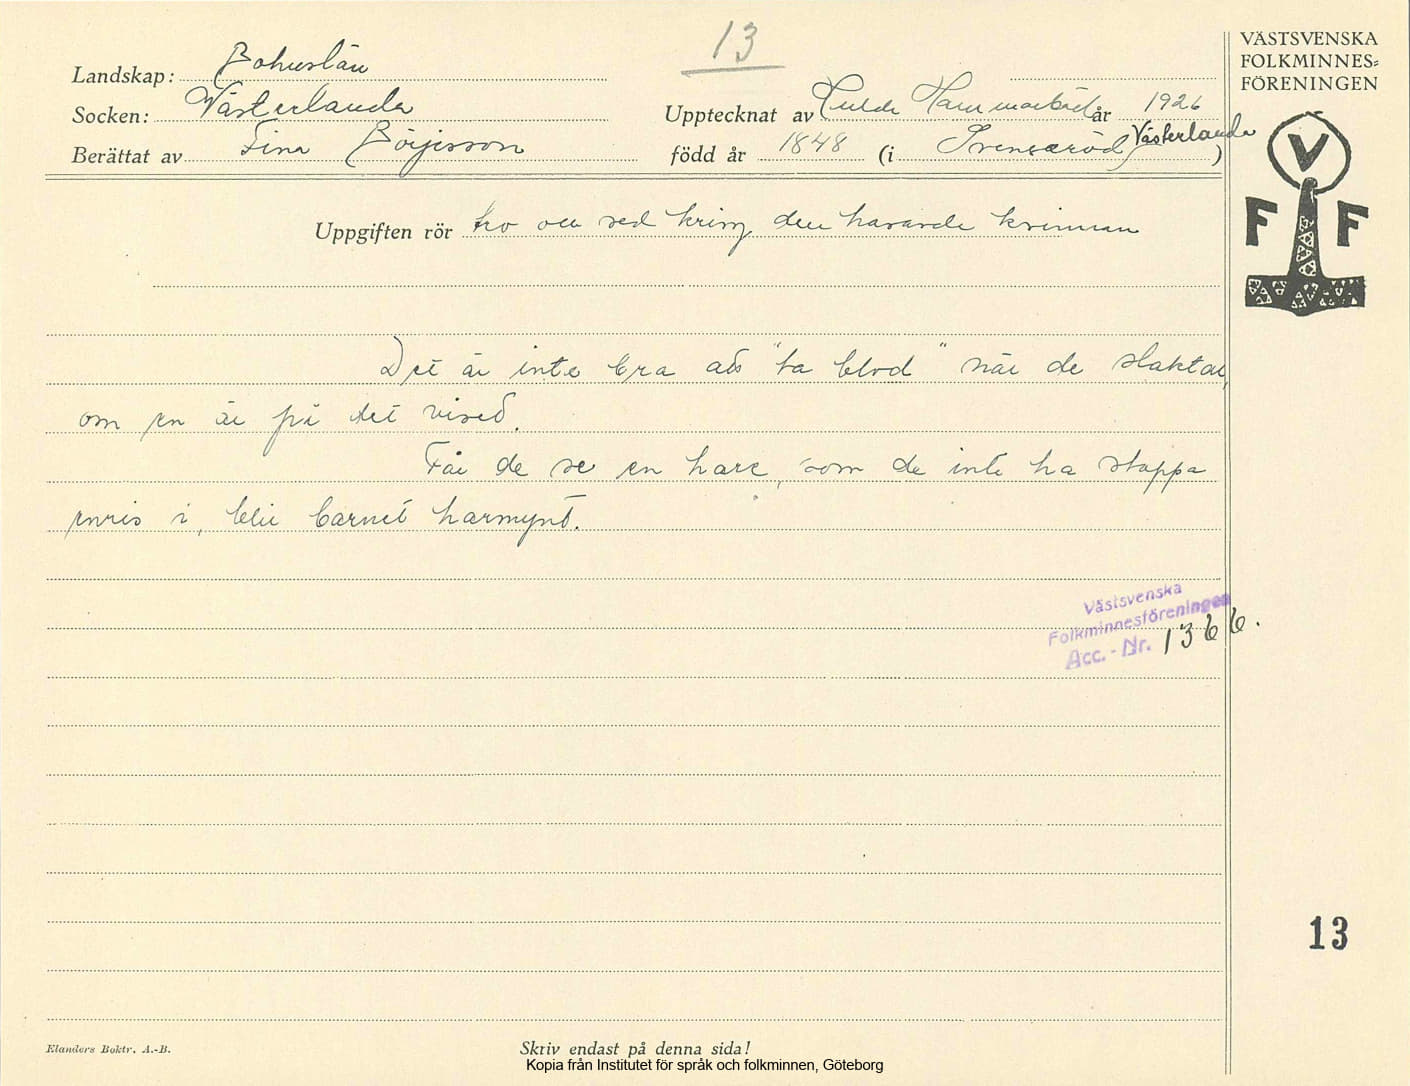 13
VÄSTSVENSKA
FOLKMINNES=
FÖRENINGEN
Landskap: Bohuslän
Socken: Västerlanda
Upptecknat av Hulda Hammarbäck år 1926
Berättat av Lina Börjesson
född år 1848 (i Svenseröd Västerlanda)
V
F F
Uppgiften rör tro och sed kring den havande kvinnan
Det är inte bra att "ta blod" när de slaktar,
om en är på det viset.
Får de se en hare, som de inte ha stoppa
enris i, blir barnet harmynt.
Västsvenska
Folkminnesföreningen
Acc.-Nr. 1366.
13
Elanders Boktr. A.-B.
Skriv endast på denna sida!
Kopia från Institutet för språk och folkminnen, Göteborg